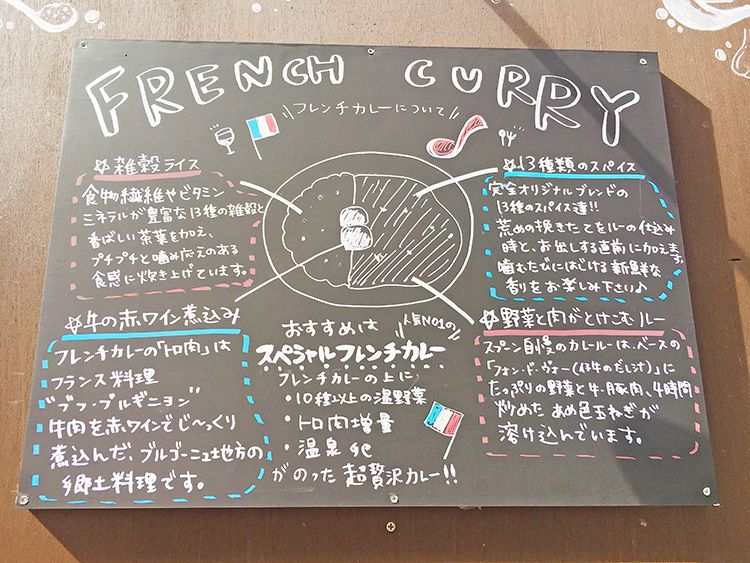 FRENCH CURRY
フレンチカレーについて
☆雑穀ライス
食物繊維やビタミン
ミネラルが豊富な13種の雑穀と
香ばしい茶葉を加え、
プチプチと噛み応えのある
食感に炊き上げています。
☆13種類のスパイス
完全オリジナルブレンドの
13種のスパイス達!!
荒めの挽きたてをルーの仕込み
時と、お出しする直前に加えます。
噛むたびにはじける新鮮な
香りをお楽しみ下さい♪
☆牛の赤ワイン煮込み
フレンチカレーの「トロ肉」は
フランス料理
"ブフ・ブルギニヨン"
牛肉を赤ワインでじ〜っくり
煮込んだ、ブルゴーニュ地方の
郷土料理です。
おすすめは
人気NO1の
スペシャルフレンチカレー
フレンチカレーの上に
・10種以上の温野菜
・トロ肉増量
・温泉卵
がのった超贅沢カレー!!
☆野菜と肉がとけこむルー
スプーン自慢のカレールーは、ベースの
「フォン・ド・ヴォー(仔牛のだし汁)」に
たっぷりの野菜と牛、豚肉、4時間
炒めたあめ色玉ねぎが
溶け込んでいます。